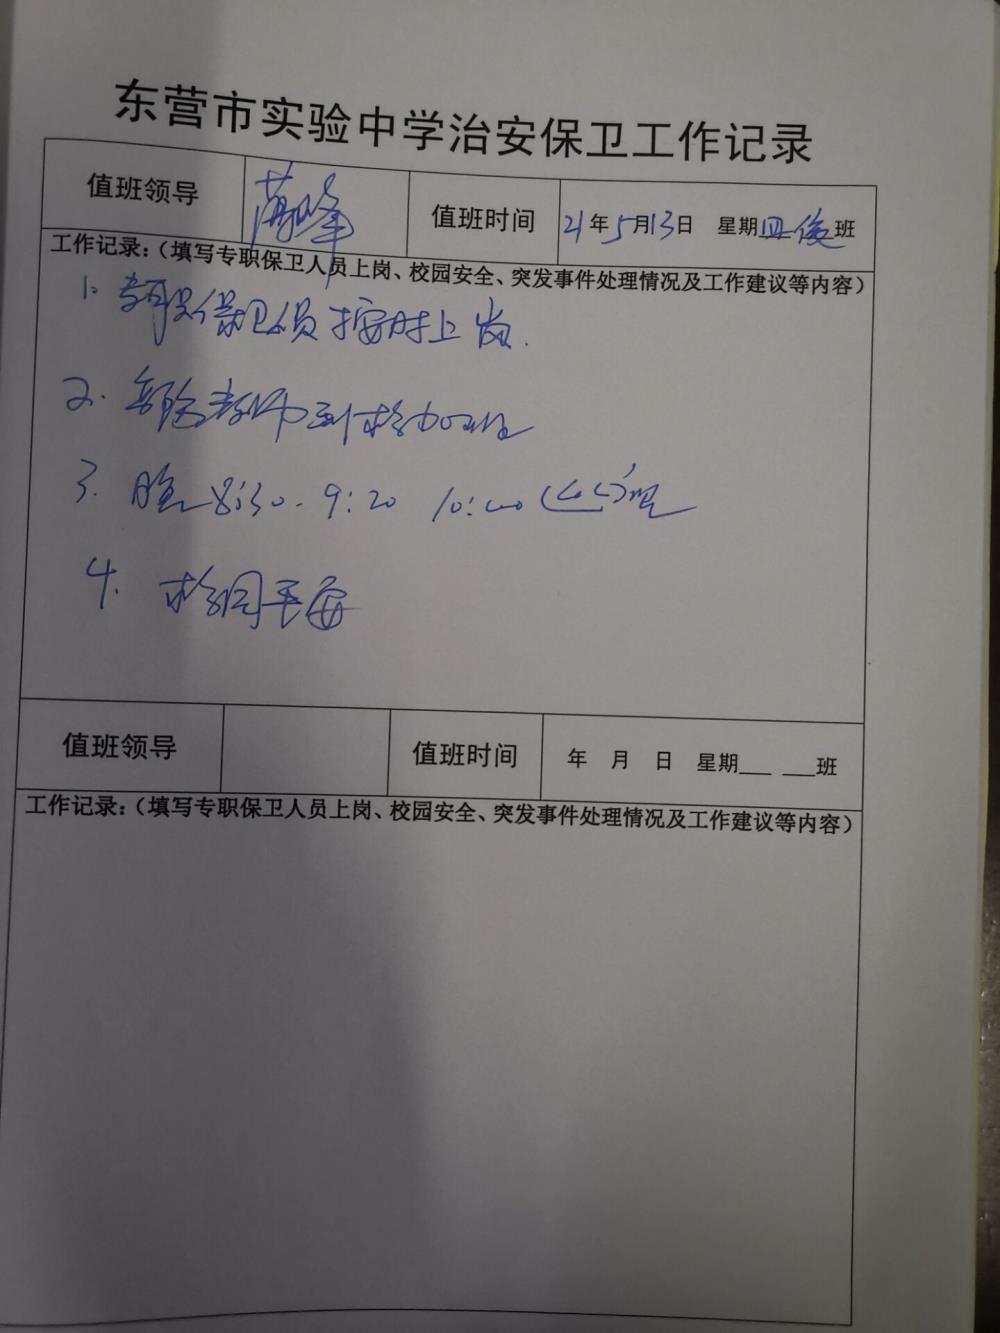 东营市实验中学治安保卫工作记录
值班领导 值班时间 21年5月13日 星期四 夜班
工作记录：（填写专职保卫人员上岗、校园安全、突发事件处理情况及工作建议等内容）
1. 专职保卫人员按时上岗.
2. 部分老师到校加班
3. 晚8:30. 9:20 10:00
4. 校园平安
值班领导 值班时间 年 月 日 星期___ ___班
工作记录：（填写专职保卫人员上岗、校园安全、突发事件处理情况及工作建议等内容）